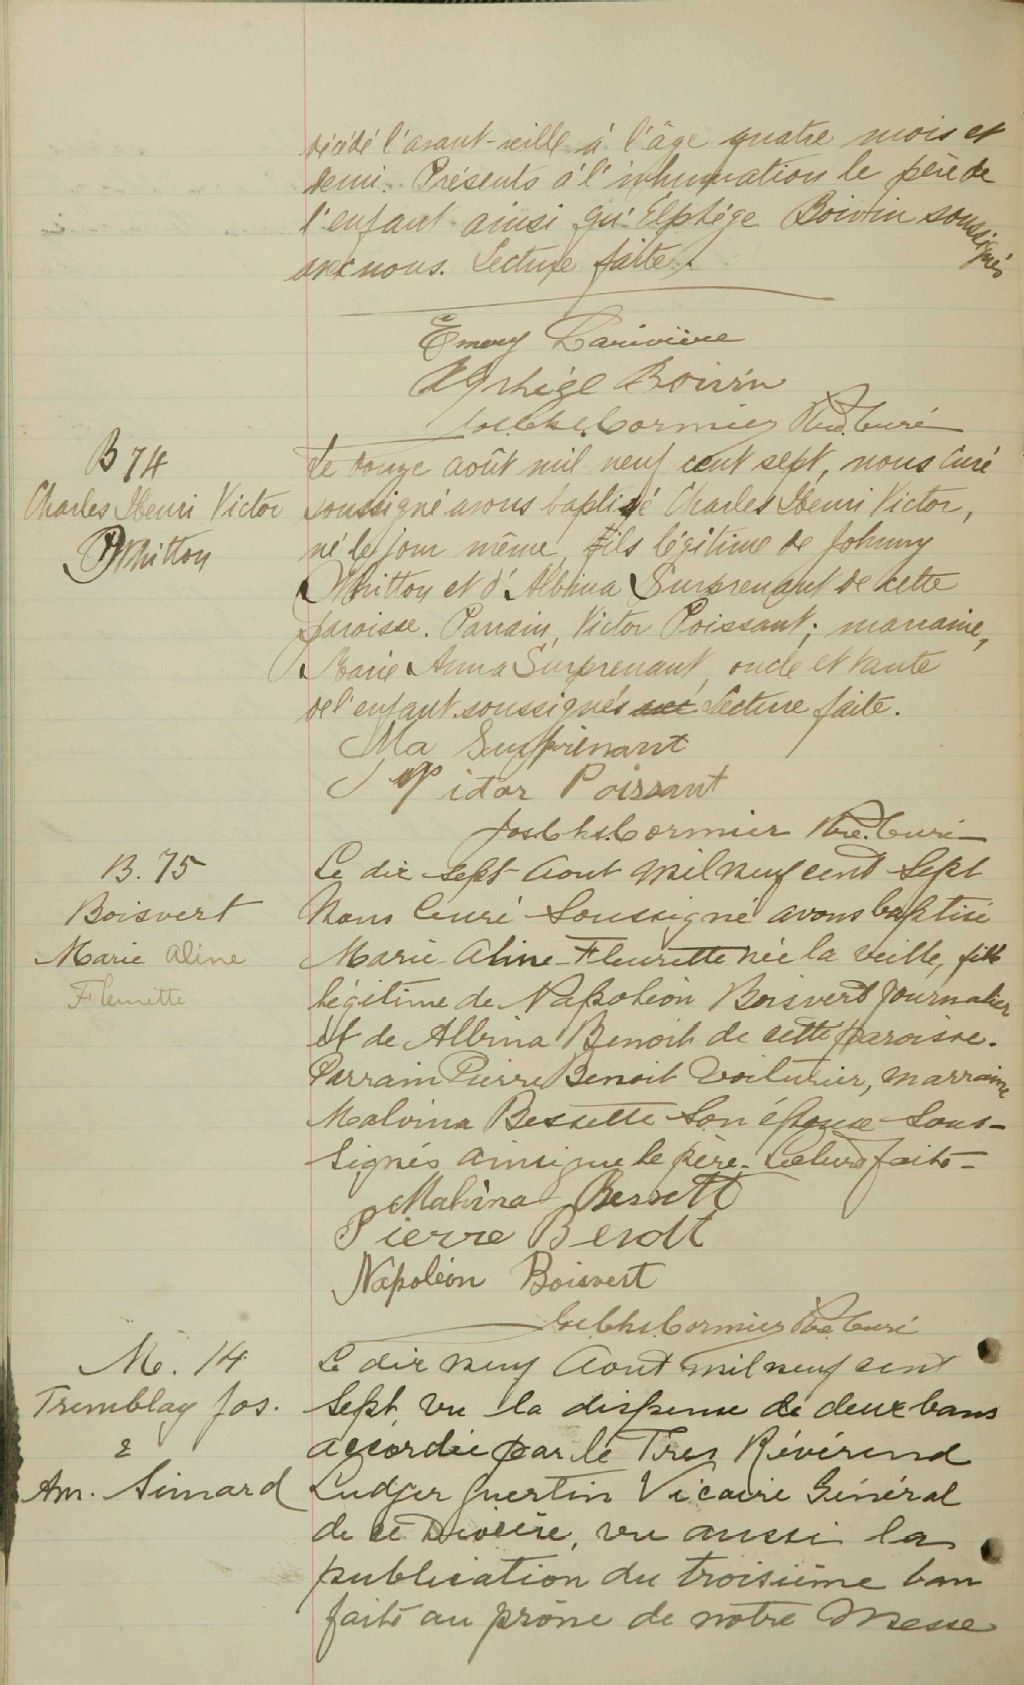 décédé l'avant-veille à l'âge quatre mois et
demi. Présents à l'inhumation le père de
l'enfant ainsi qu'Elphége Boivin soussignés
avec nous. Lecture faite.
Emery Larivière
Elphége Boivin
Jos. Chs. Cormier Ptre. Curé
B 74
Charles Henri Victor
Whitton
Le douze août mil neuf cent sept, nous Curé
soussigné avons baptisé Charles Henri Victor,
né le jour même, fils légitime de Johnny
Whitton et d'Albina Surprenant de cette
paroisse. Parrain, Victor Poissant; marraine,
Marie Anna Surprenant, oncle et tante
de l'enfant soussignés Lecture faite.
Ma Surprenant
Victor Poissant
Jos. Chs. Cormier Ptre. Curé
B. 75
Boisvert
Marie Aline
Fleurette
Le dix sept Aout mil neuf cent Sept
Nous Curé Soussigné avons baptisé
Marie-Aline-Fleurette née la veille, fille
légitime de Napoléon Boisvert journalier
et de Albina Benoit de cette paroisse.
Parrain Pierre Benoit Voiturier, marraine
Malvina Bessette Son épouse Sous-
signés ainsi que le père. Lecture faite-
Malvina Bessett
Pierre Benoit
Napoléon Boisvert
Jos. Chs. Cormier Ptre. Curé
M. 14
Tremblay Jos.
&
Am. Simard
Le dix neuf Aout mil neuf cent
Sept, vu la dispense de deux bans
accordée par le Tres Révérend
Ludger Guertin Vicaire Général
de ce Diocèse, vu aussi la
publication du troisième ban
faite au prône de notre Messe